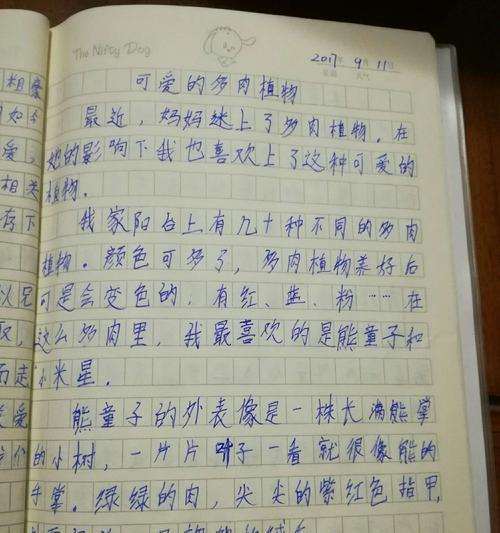 The Nifty Dog
2017年9月11日
星期 天气
可爱的多肉植物
最近，妈妈迷上了多肉植物。在
她的影响下我也喜欢上了这种可爱的
植物。
我家阳台上有几十种不同的多肉
植物。颜色可多了，多肉植物养好后
可是会变色的，有红、蓝、粉……在
这么多肉里，我最喜欢的是熊童子和
小米星。
熊童子的外表像是一株长满熊掌
的小树，一片片叶子一看就很像熊的
手掌。绿绿的肉，尖尖的紫红色指甲，
相亲
如今
爱，
相关
存下
以兄
而走
关爱